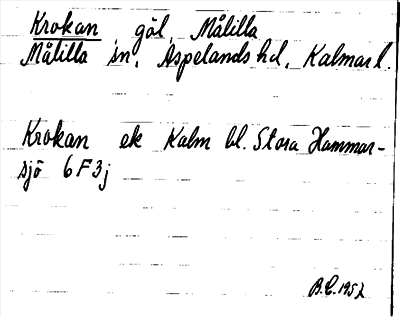 Krokan, göl, Målilla
Målilla sn, Aspelands hd, Kalmar l.
Krokan ek Kalm bl. Stora Hammar-
sjö 6F3j
B.L. 1952